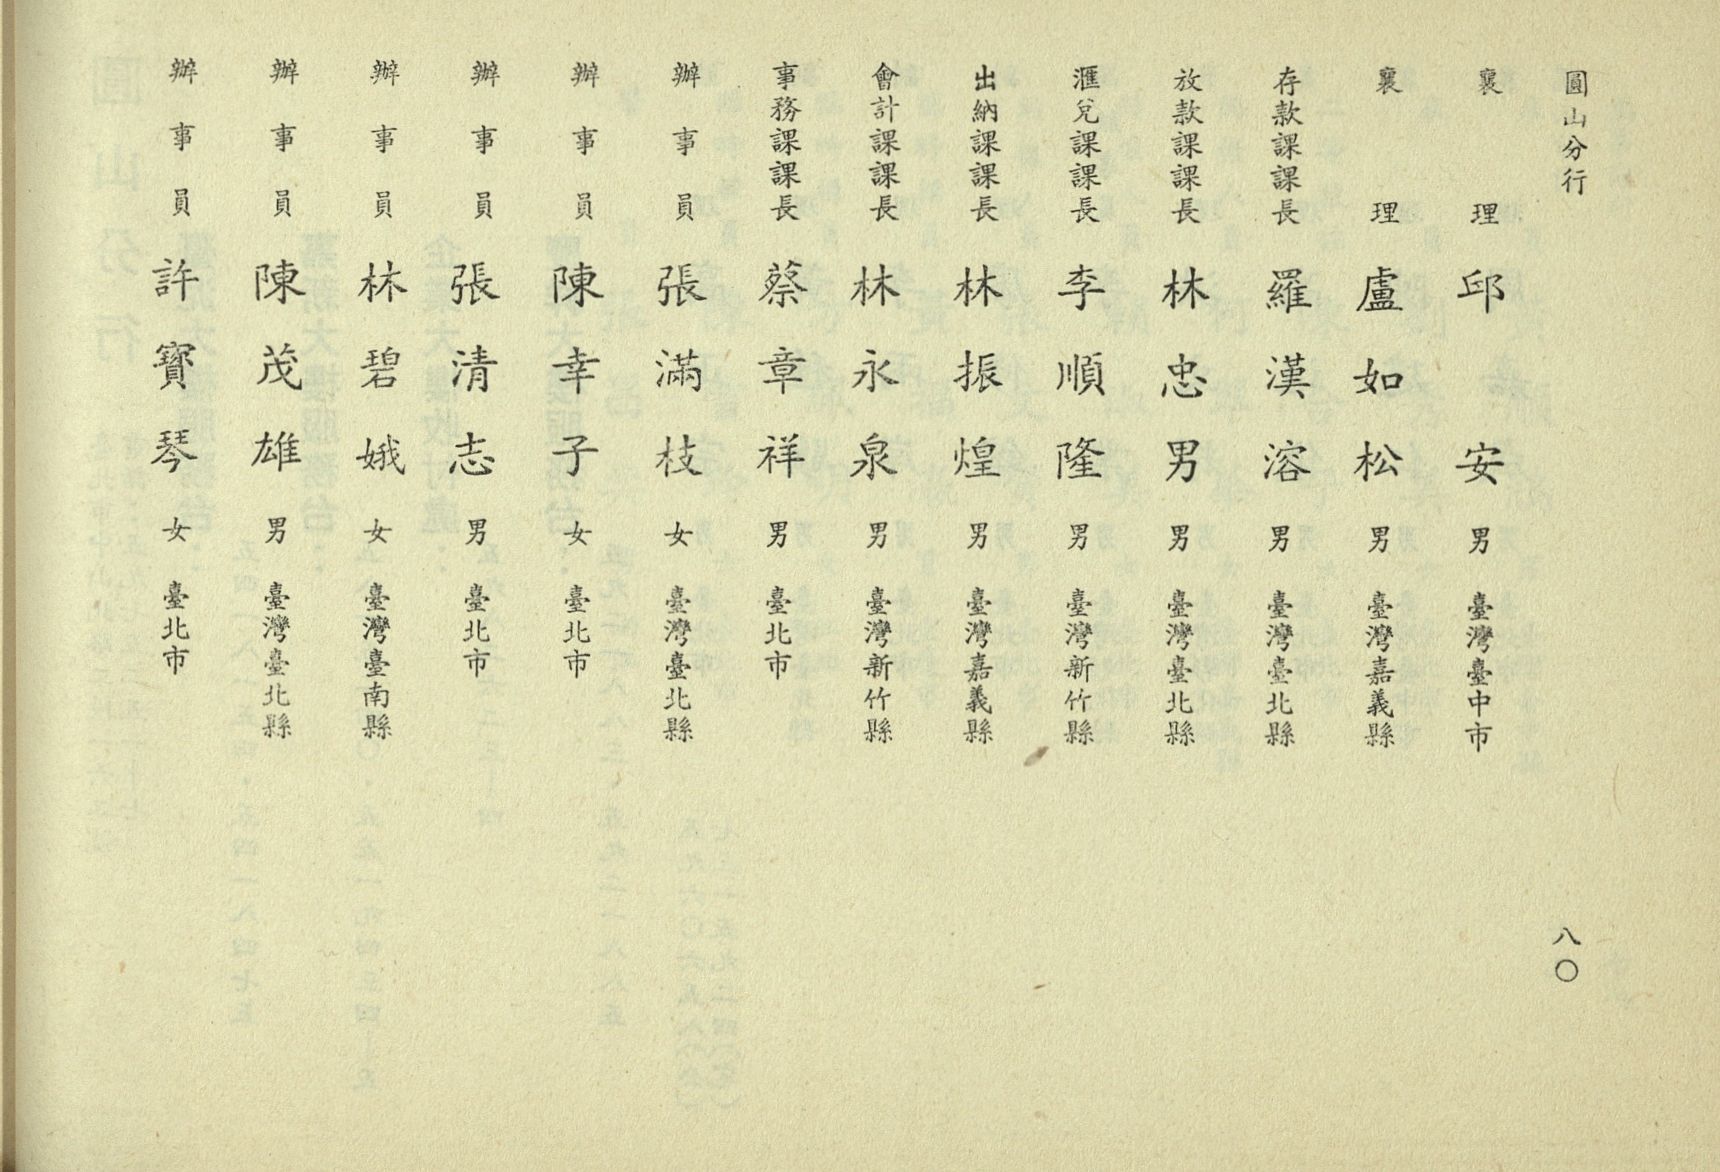 圓山分行
八〇
襄理 邱安 男 臺灣臺中市
襄理 盧如松 男 臺灣嘉義縣
存款課課長 羅漢溶 男 臺灣臺北縣
放款課課長 林忠男 男 臺灣臺北縣
滙兌課課長 李順隆 男 臺灣新竹縣
出納課課長 林振煌 男 臺灣嘉義縣
會計課課長 林永泉 男 臺灣新竹縣
事務課課長 蔡章祥 男 臺北市
辦事員 張滿枝 女 臺灣臺北縣
辦事員 陳幸子 女 臺北市
辦事員 張清志 男 臺北市
辦事員 林碧娥 女 臺灣臺南縣
辦事員 陳茂雄 男 臺灣臺北縣
辦事員 許寶琴 女 臺北市